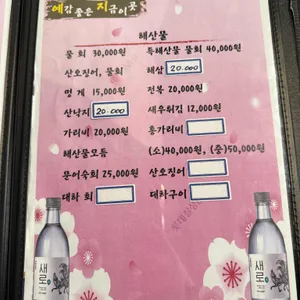 예감좋은 지금이곳
해산물
물 회 30,000원 특해산물 물회 40,000원
산오징어, 물회 해삼 20.000
멍 게 15,000원 전복 20,000원
산낙지 20.000 새우튀김 12,000원
가리비 20,000원 홍가리비
해산물모듬 (소)40,000원, (중)50,000원
문어숙회 25,000원 산오징어
대하 회 대하구이
새로
새로